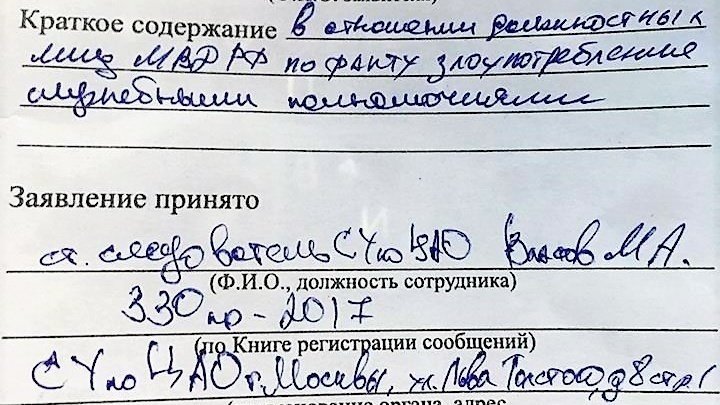 Краткое содержание в отношении должностных
лиц МВД РФ по факту злоупотребления
служебными полномочиями
Заявление принято
ст. следователь СУ по ЦАО Власов М А.
(Ф.И.О., должность сотрудника)
330 пр - 2017
(по Книге регистрации сообщений)
СУ по ЦАО г. Москвы, ул. Льва Толстого, д 8 стр. 1